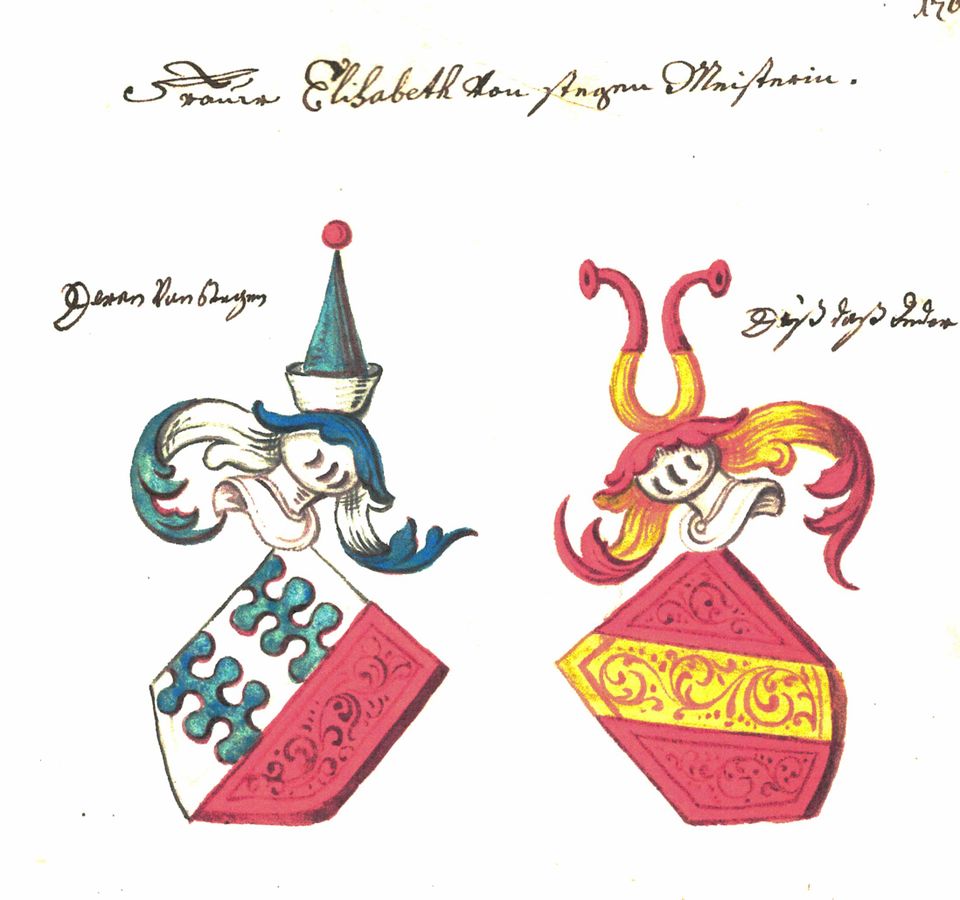 Frauw Elisabeth von stegen Meisterin.
Deren von Stegen
Diß daß Ander